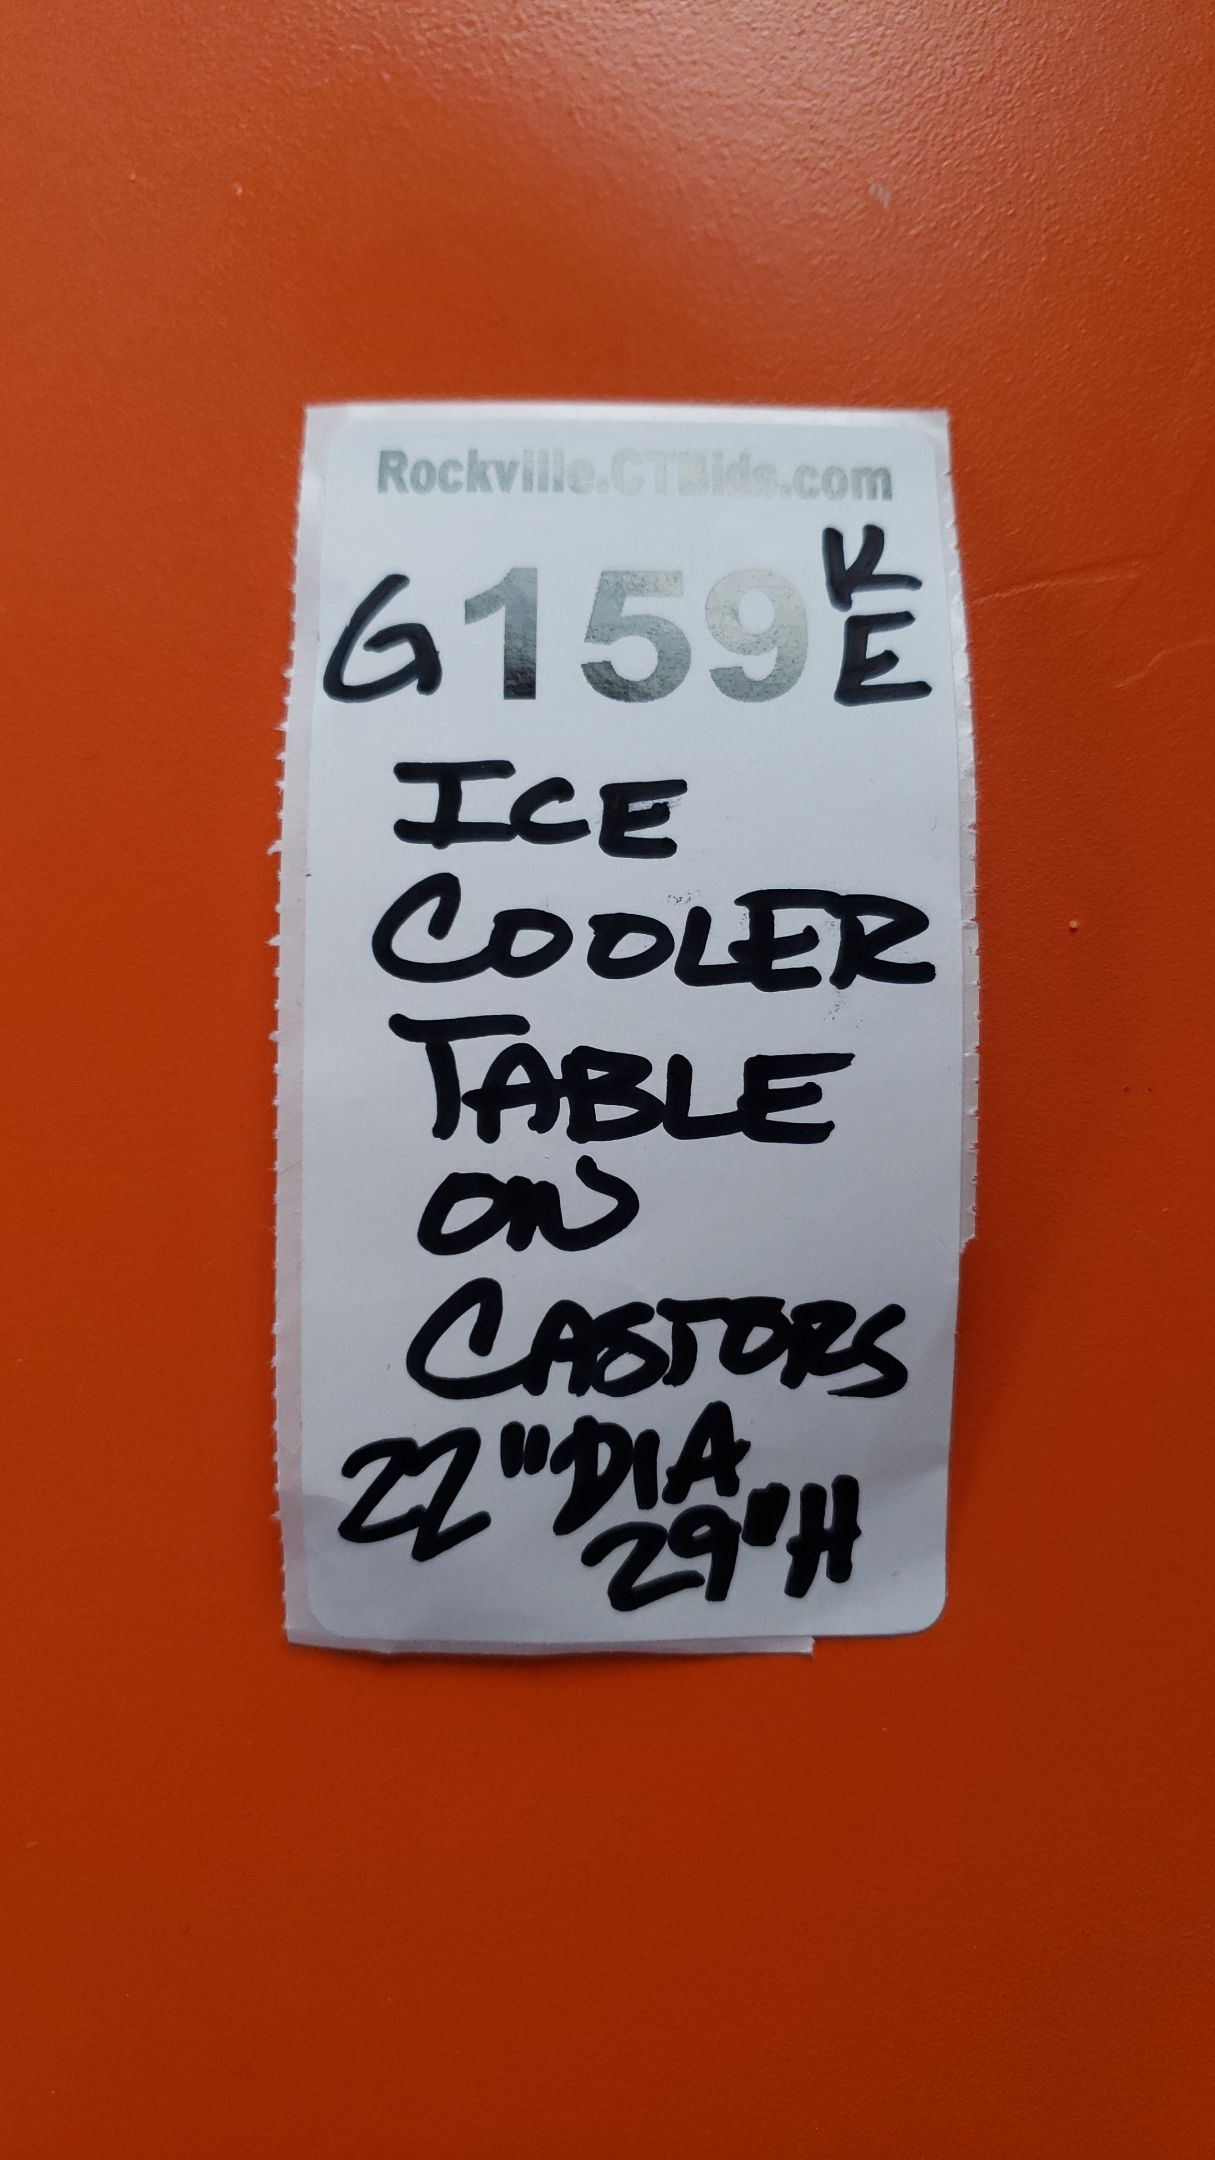 Rockville.CTBids.com
G159 KE
ICE
COOLER
TABLE
ON
CASTORS
22" DIA
29" H